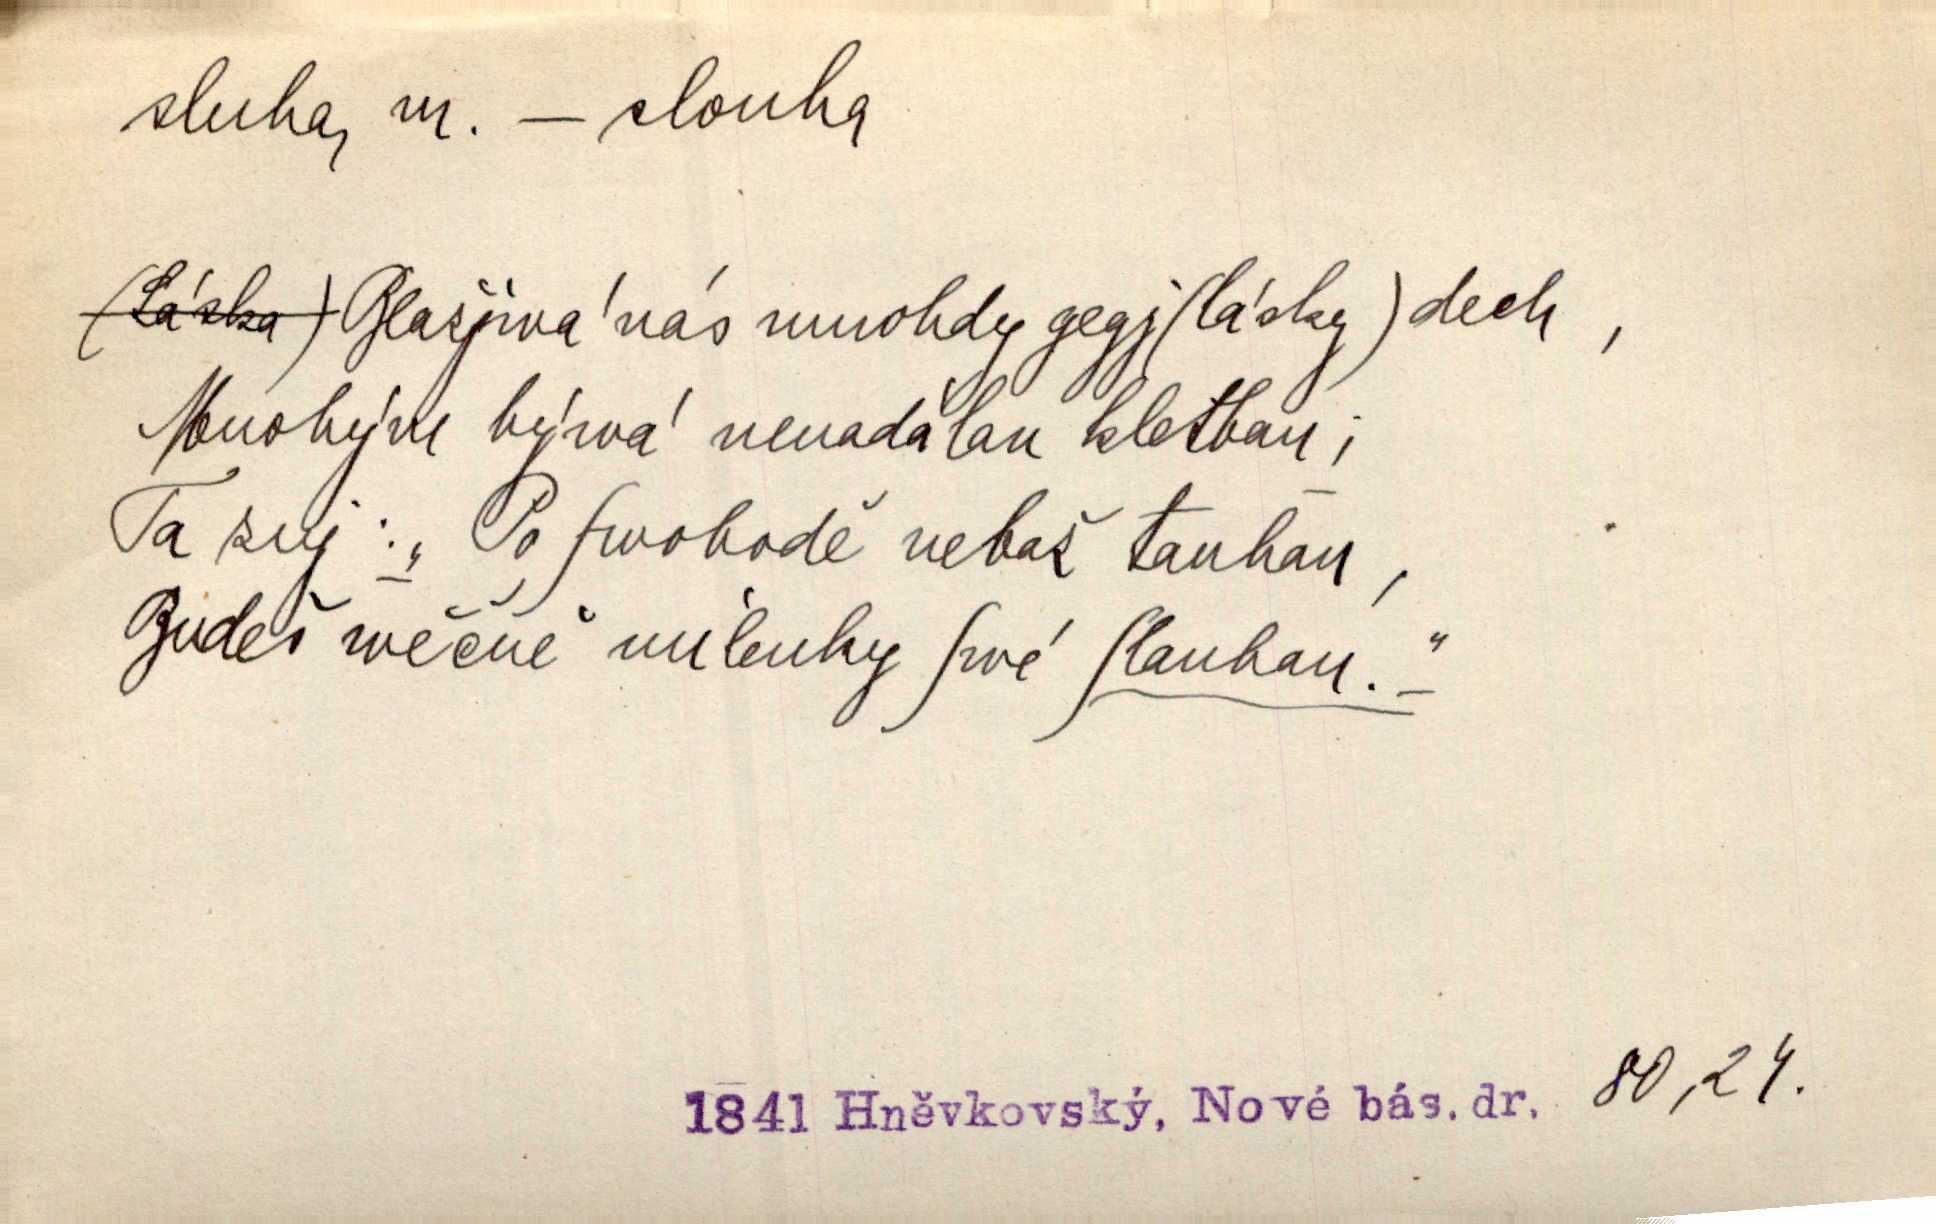 sluha, m. – slouha
(Láska) Blažjwá nás mnohdy gegj (lásky) dech,
Mnohým býwá nenadálau kletbau;
Ta znj: „Po swobodě nebaž tauhau,
Budeš wěčně milenky swé slauhau.“
1841 Hněvkovský, Nové bás. dr. 80,24.